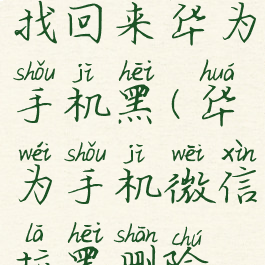 找回来华为
shǒu jī hēi huá
手机黑(华
wéi shǒu jī wēi xìn
为手机微信
lā hēi shān chú
拉黑删除